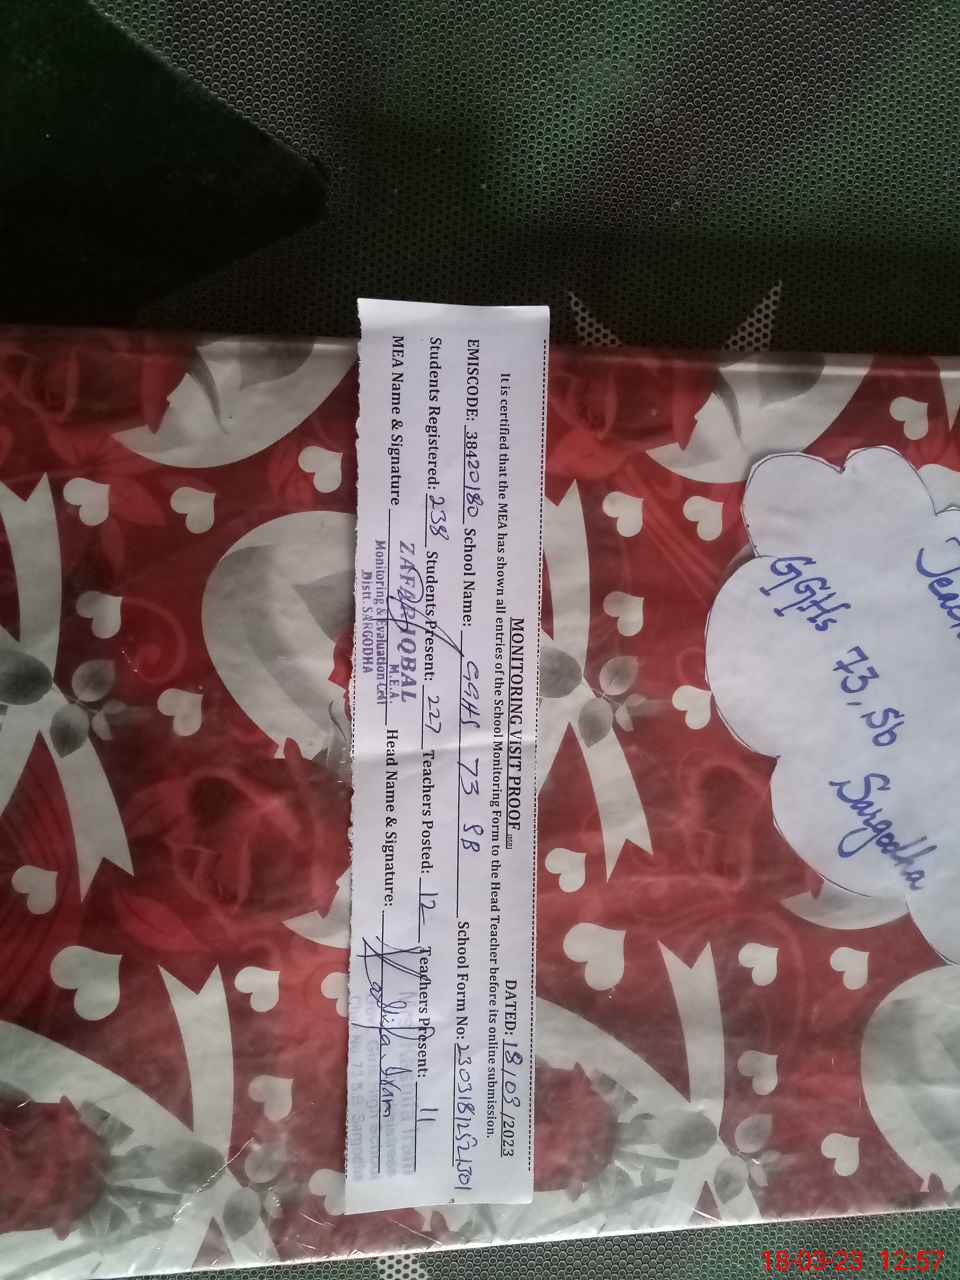 MONITORING VISIT PROOF DATED: 18/03/2023
It is certified that the MEA has shown all entries of the School Monitoring Form to the Head Teacher before its online submission.
EMISCODE: 38420180 School Name: GGHS 73 SB School Form No: 23031812521301
Students Registered: 238 Students Present: 227 Teachers Posted: 12 Teachers Present: 11
MEA Name & Signature Head Name & Signature:
ZAFAR IQBAL
M.E.A.
Monitoring & Evaluation Cell
Distt. SARGODHA
GGHS 73, SB Sargodha
18-03-23 12:57